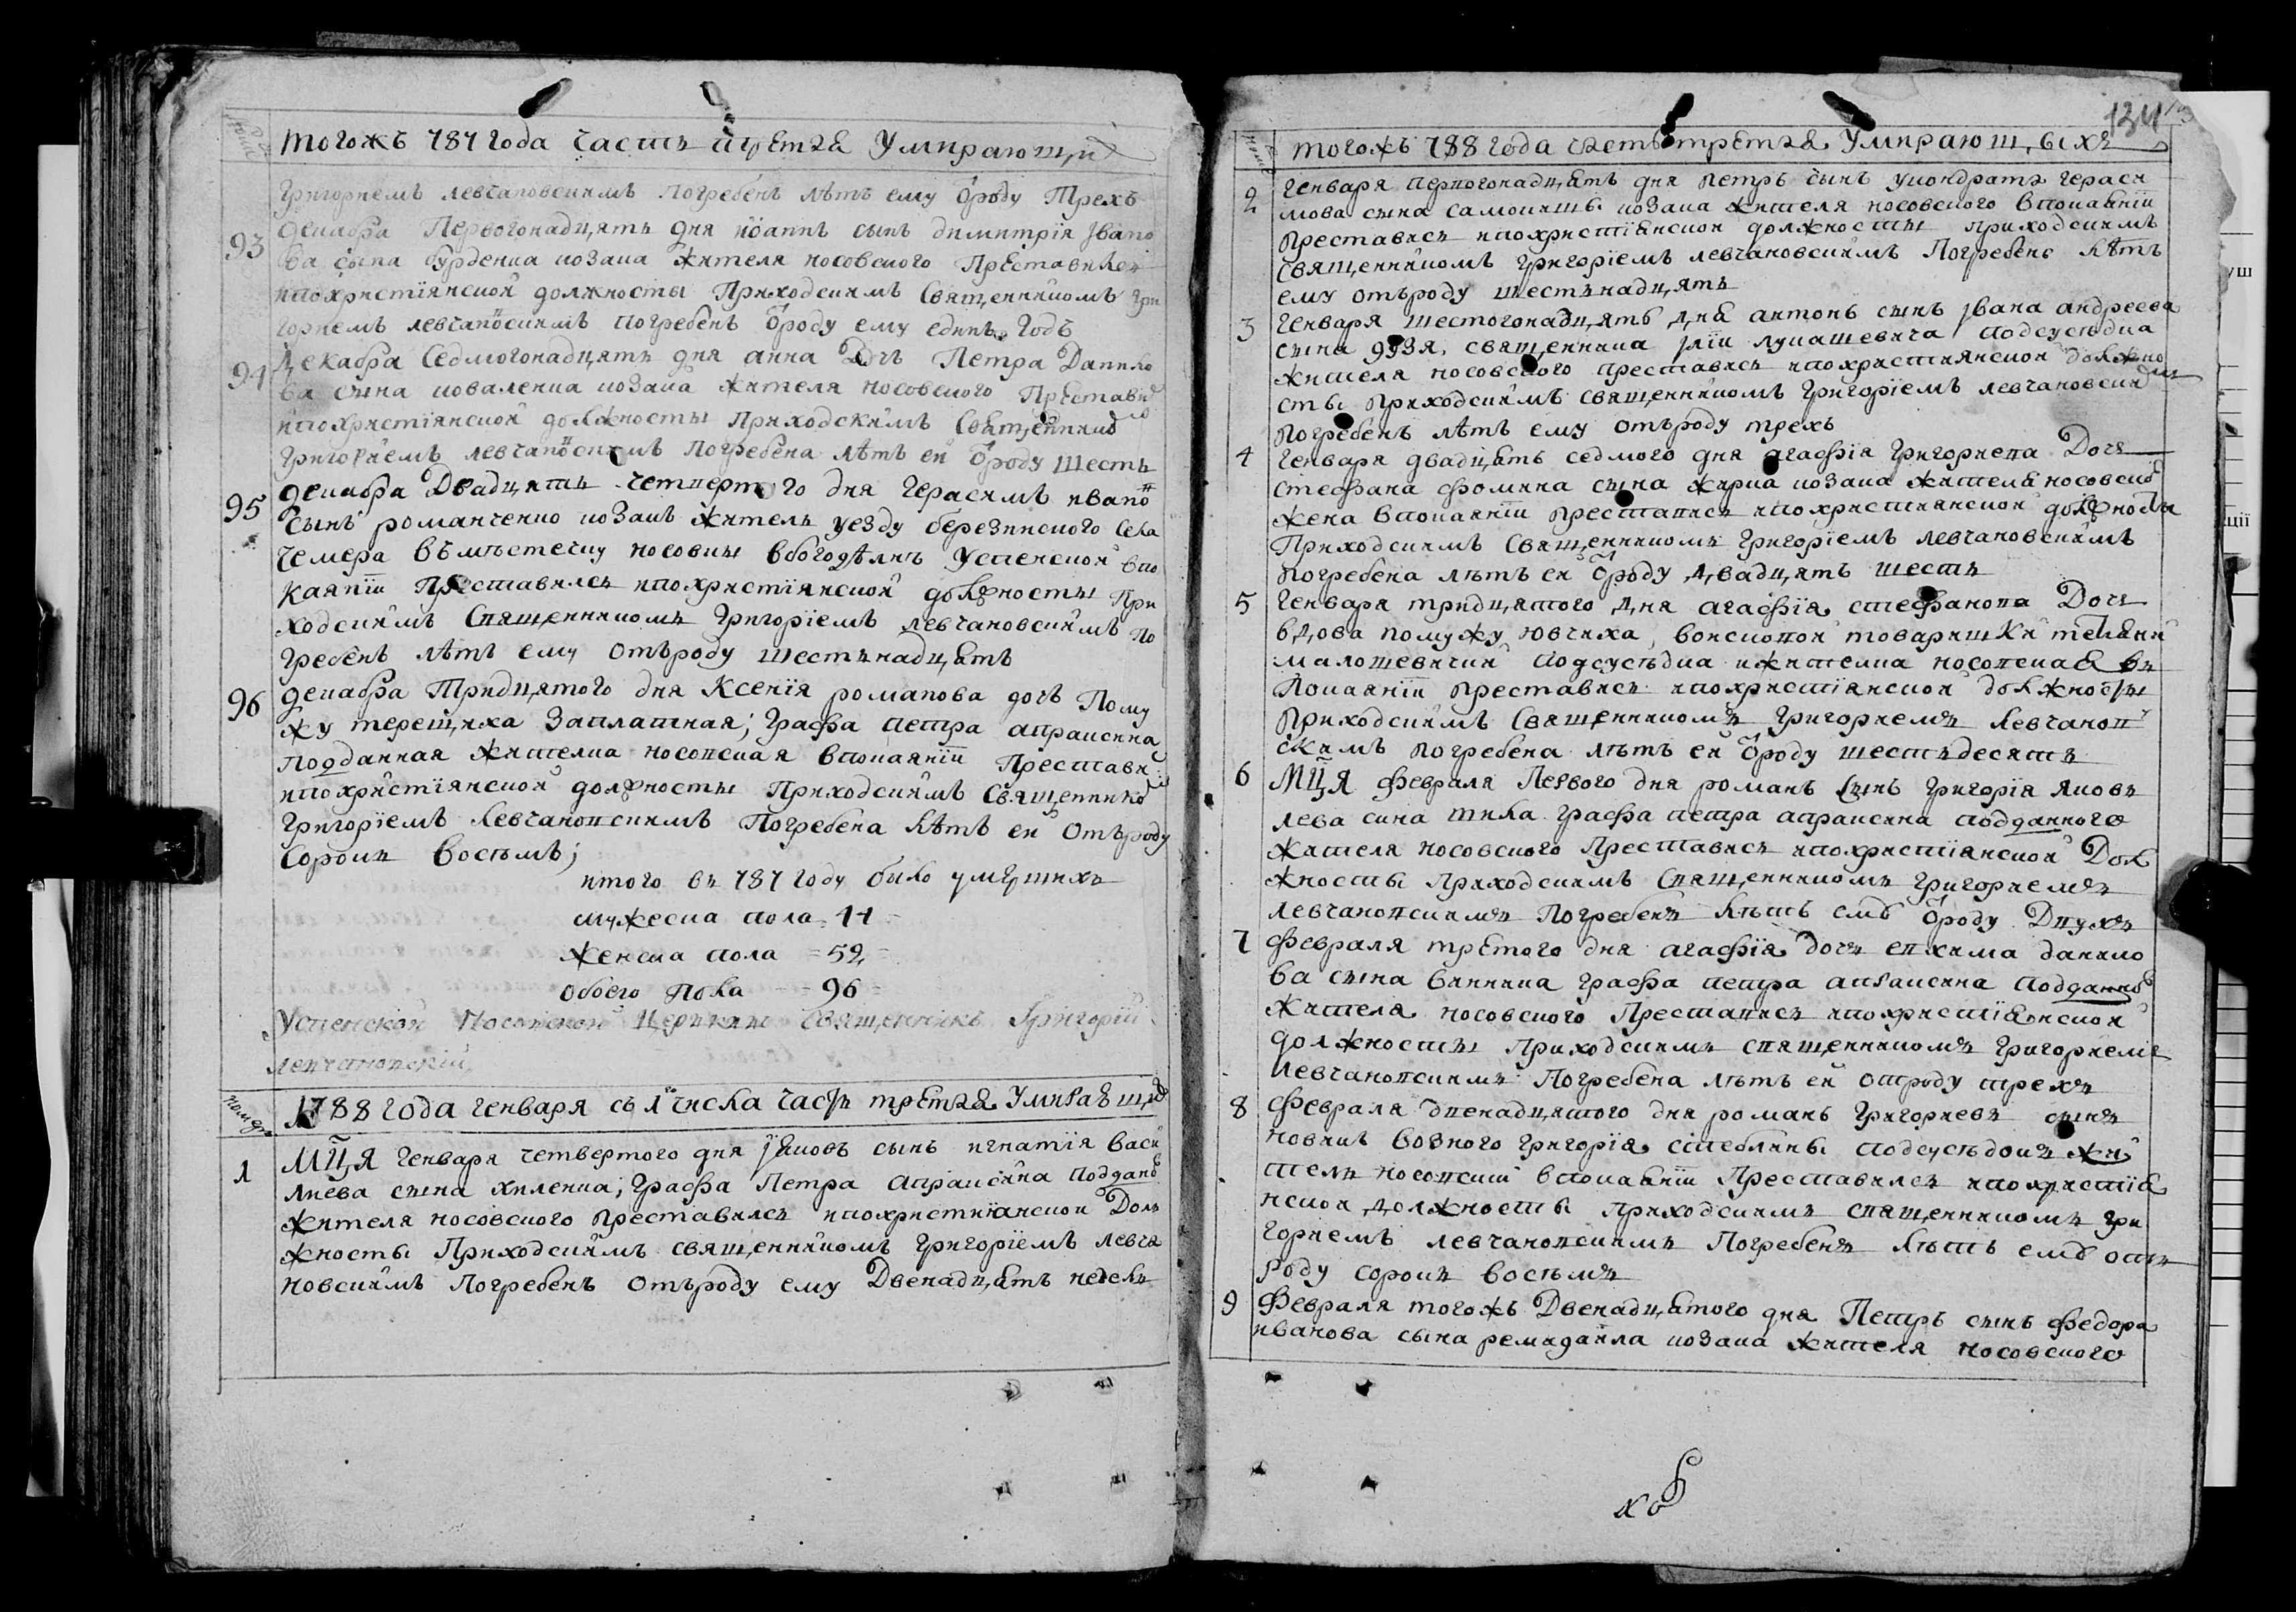 номеръ
того жъ 787 года часть третяя Умирающи
Григориемъ левчановскимъ погребенъ лѣтъ ему ѿроду Трехъ
93 декабра Первогонадцять дня иоаннъ сынъ димитрія Ивано
ва сына бурденка козака жителя носовского Преставился
ипохристіянской должносты Приходскимъ Священникомъ Гри
гориемъ левчановскимъ погребенъ ѿроду ему единъ годъ
94 Декабра Седмогонадцять дня анна Дочь Петра Данило
ва сына коваленка козака жителя носовского Преставис
ипохристіянской должносты Приходскимъ Священнико
Григориемъ левчановскимъ Погребена лѣтъ ей ѿроду Шесть
95 декабра Двадцять четвертого дня Герасимъ ивано
сынъ романченко козакъ житель уезду березинского Села
Чемера въ мѣстечку носовки вбогодѣлнѣ Успенской впо
каянїи Преставился ипохристіянской должносты При
ходскимъ Священникомъ Григоріемъ левчановскимъ по
гребенъ лѣтъ ему отъроду шестьнадцять
96 декабра Тридцятого дня Ксенія романова дочь Пому
жу терещиха Заплатная; Графа петра апраксина
подданная жителка носовская впокаянїи Престави
ипохристіянской должносты Приходскимъ Священнико
Григоріемъ Левчановскимъ Погребена лѣтъ ей Отъроду
Сорокъ восемъ;
итого въ 787 году било умершихъ
мужеска пола 44
женска пола = 52
обоего пола = 96
Успенской Носовской Церкви Священникъ Григорій
левчановскій
номеръ
1788 года генваря съ 1го числа часть третяя Умирающи
1 Мц҃я Генваря четвертого дня Іяковъ сынъ игнатія васи
лиева сына хиленка; Графа Петра апраксина поддано
жителя носовского преставился ипохристиянской Долъ
жносты Приходскимъ священникомъ Григоріемъ левча
новскимъ Погребенъ отъроду ему Двенадцять недель
134
номеръ
того жъ 788 года часть третяя Умирающыхъ
2 Генваря первогонадцять дня петръ сынъ кондрата Гераси
мова сына самокиши козака жителя носовского впокаянїи
преставися ипохристіянской должносты приходскимъ
священникомъ Григоріемъ левчановскимъ Погребенъ лѣтъ
ему отъроду шестьнадцять
3 Генваря шестогонадцять дня антонъ сынъ Ивана андреева
сына дзя. священника Іліи лукашевича подсусѣдка
жителя носовского преставися ипохристиянской должно
сты приходскимъ священникомъ Григоріемъ левчановски
погребенъ лѣтъ ему отъроду трехъ
4 Генваря двадцять седмого дня агафія Григориева Дочь
стефана фомина сына жирка козака жителя носовско
жена впокаянїи преставися ипохристиянской должносты
Приходскимъ Священникомъ Григоріемъ левчановскимъ
погребена лѣтъ ей ѿроду двадцять шесть
5 Генваря тридцятого дня агафія стефанова Дочь
вдова помужу ювчиха, войсковой товаришки тетяни
малошевички подсусѣдка и жителка носовская въ
Покаянїи преставися ипохристіянской должносты
приходскимъ Священникомъ Григориемъ Левчанов
скимъ погребена лѣтъ ей ѿроду шестьдесятъ
6 Мц҃я Февраля Первого дня романъ Сынъ Григорія яков
лева сина шила графа петра апраксина подданного
жителя носовского Преставися ипохристіянской Дол
жносты Приходскимъ Священникомъ Григориемъ
левчановскимъ Погребенъ лѣтъ ему ѿроду Двухъ
7 Февраля третого дня агафія дочь евхима данило
ва сына винника графа петра апраксина поддано
жителя носовского Преставися ипохристіянской
должносты Приходскимъ священникомъ Григориемъ
Левчановскимъ Погребена лѣтъ ей отроду трехъ
8 Февраля двенадцятого дня романъ Григориевъ сынъ
новикъ возного Григорія стеблины подсусѣдокъ жи
тель носовский впокаянїи Преставился ипохристія
нской должносты Приходскимъ священникомъ Гри
гориемъ левчановскимъ Погребенъ лѣтъ ему отъ
роду сорокъ восемъ
9 Февраля тогожъ Двенадцятого дня Петръ сынъ Федора
иванова сына ремиздаила козака жителя носовского